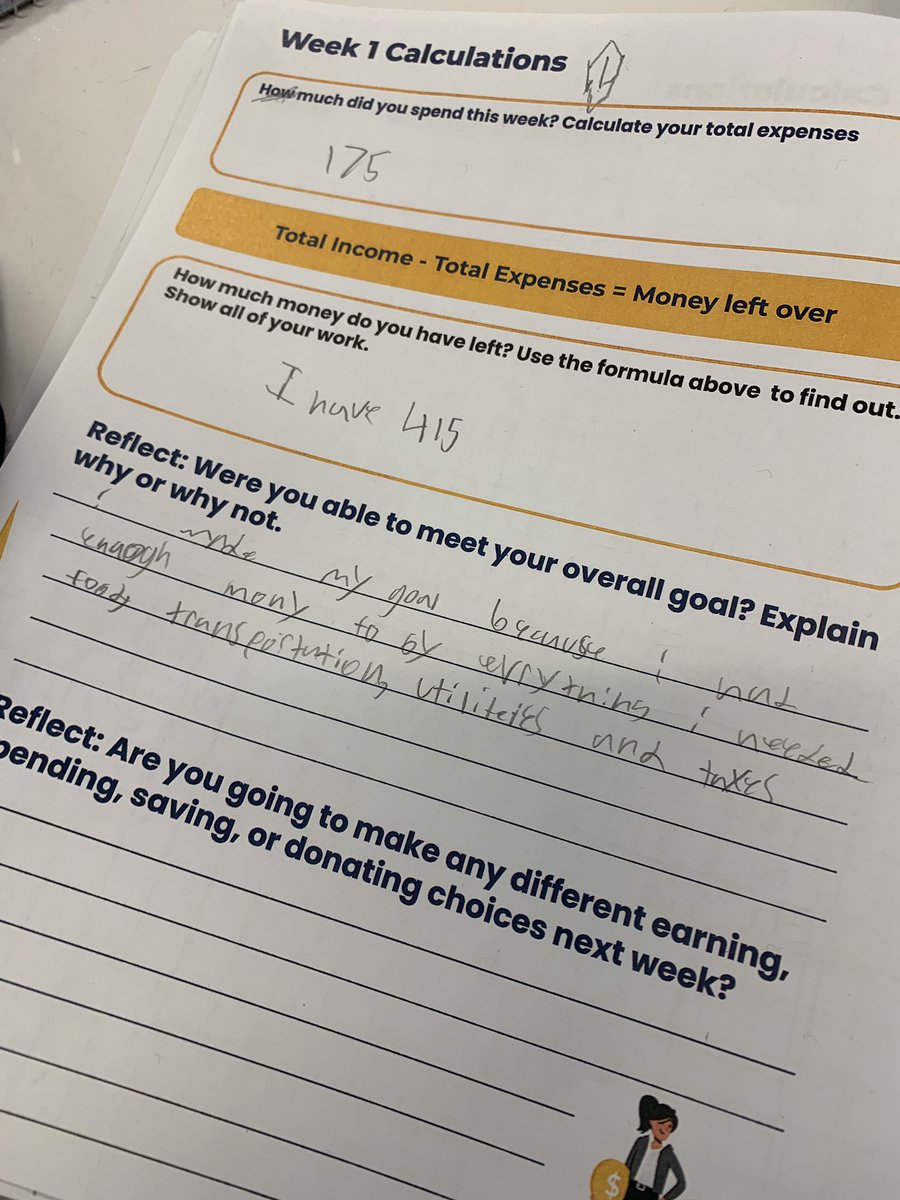 Week 1 Calculations
How much did you spend this week? Calculate your total expenses
175
Total Income - Total Expenses = Money left over
How much money do you have left? Use the formula above to find out.
Show all of your work.
I have 415
Reflect: Were you able to meet your overall goal? Explain
why or why not.
i made my goal because i had
enaogh mony to by evrything i needed
foody transportation, utiliteies and taxes
Reflect: Are you going to make any different earning,
pending, saving, or donating choices next week?
$